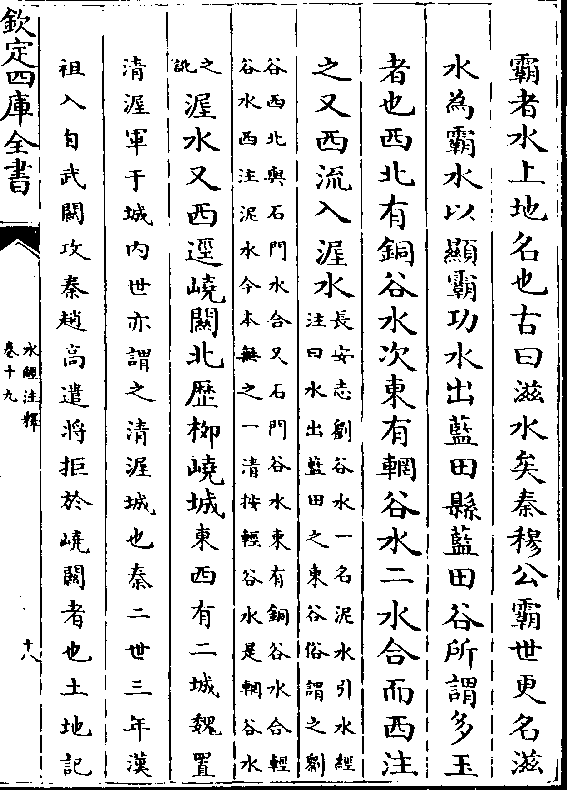 霸者水上地名也古曰滋水矣秦穆公霸世更名滋
水為霸水以顯霸功水出藍田縣藍田谷所謂多玉
者也西北有銅谷水次東有輞谷水二水合而西注
之又西流入渥水
長安志劉谷水一名泥水引水經
注曰水出藍田之東谷俗謂之劉
谷西北與石門水合又石門谷水東有銅谷水合輕
谷水西注泥水今本無之一清按輕谷水是輞谷水
之
訛
渥水又西逕嶢關北歴栁嶢城東西有二城魏置
清渥軍于城内世亦謂之清渥城也秦二世三年漢
祖入自武關攻秦趙高遣將拒於嶢關者也土地記
欽定四庫全書
水經注釋
卷十九
十八